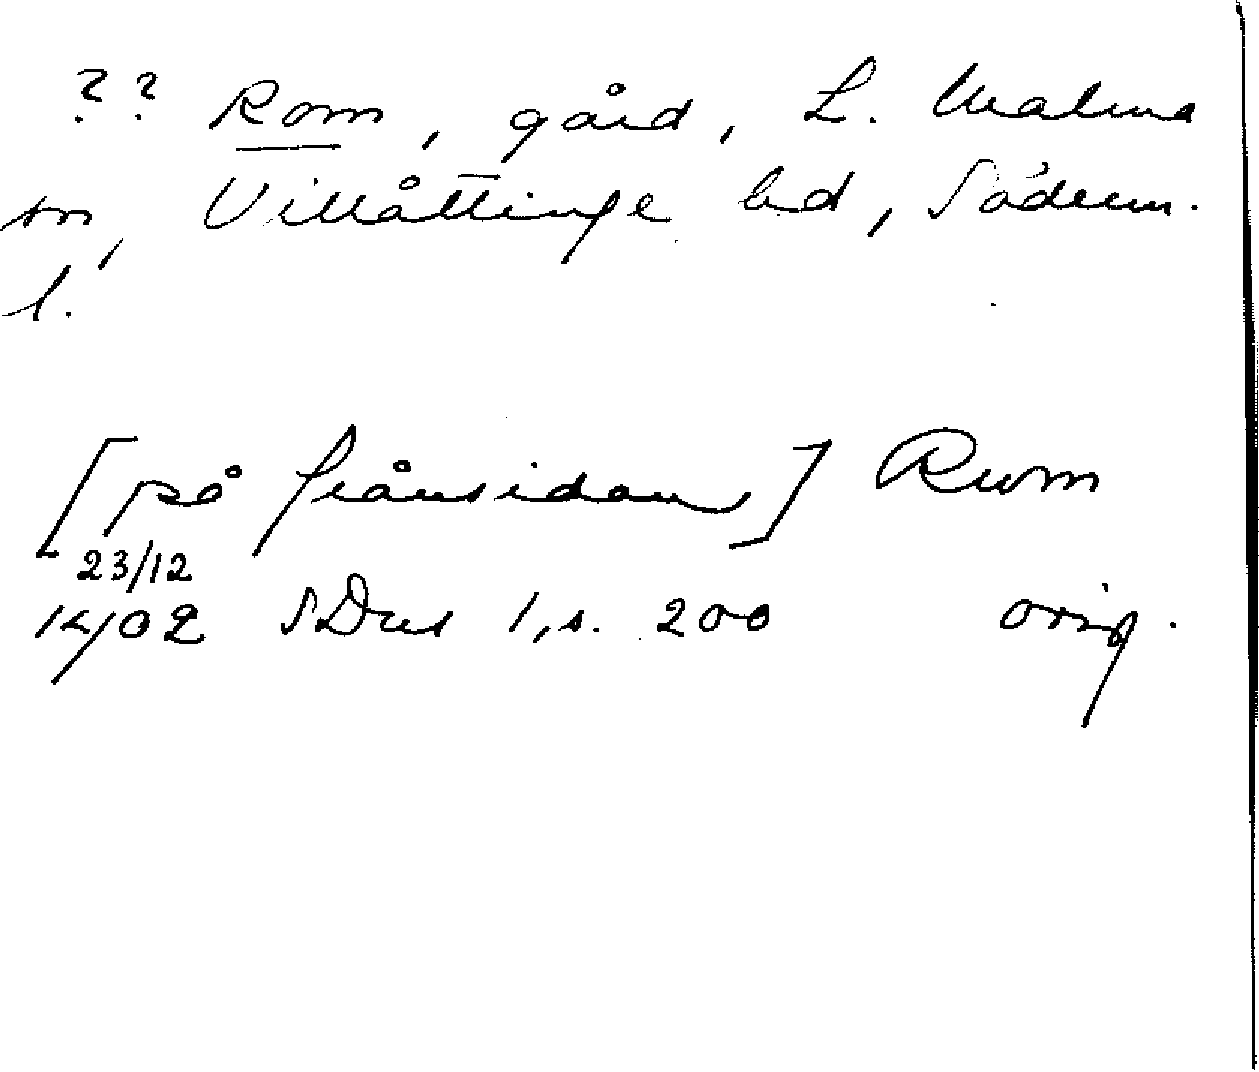 ?? Rom, gård, L. Malms
sn, Villåttinge hd, Söderm.
l.
[på frånsidan] Rwm
23/12
1402 SDns 1, s. 200 orig.